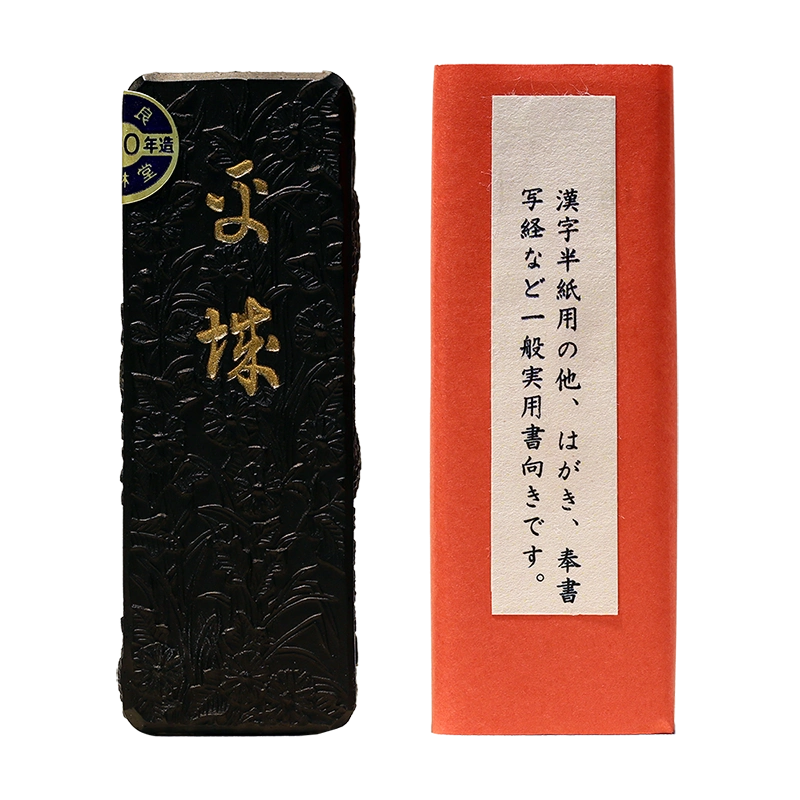 良
0年造
林堂
平城
漢字半紙用の他、はがき、奉書
写経など一般実用書向きです。